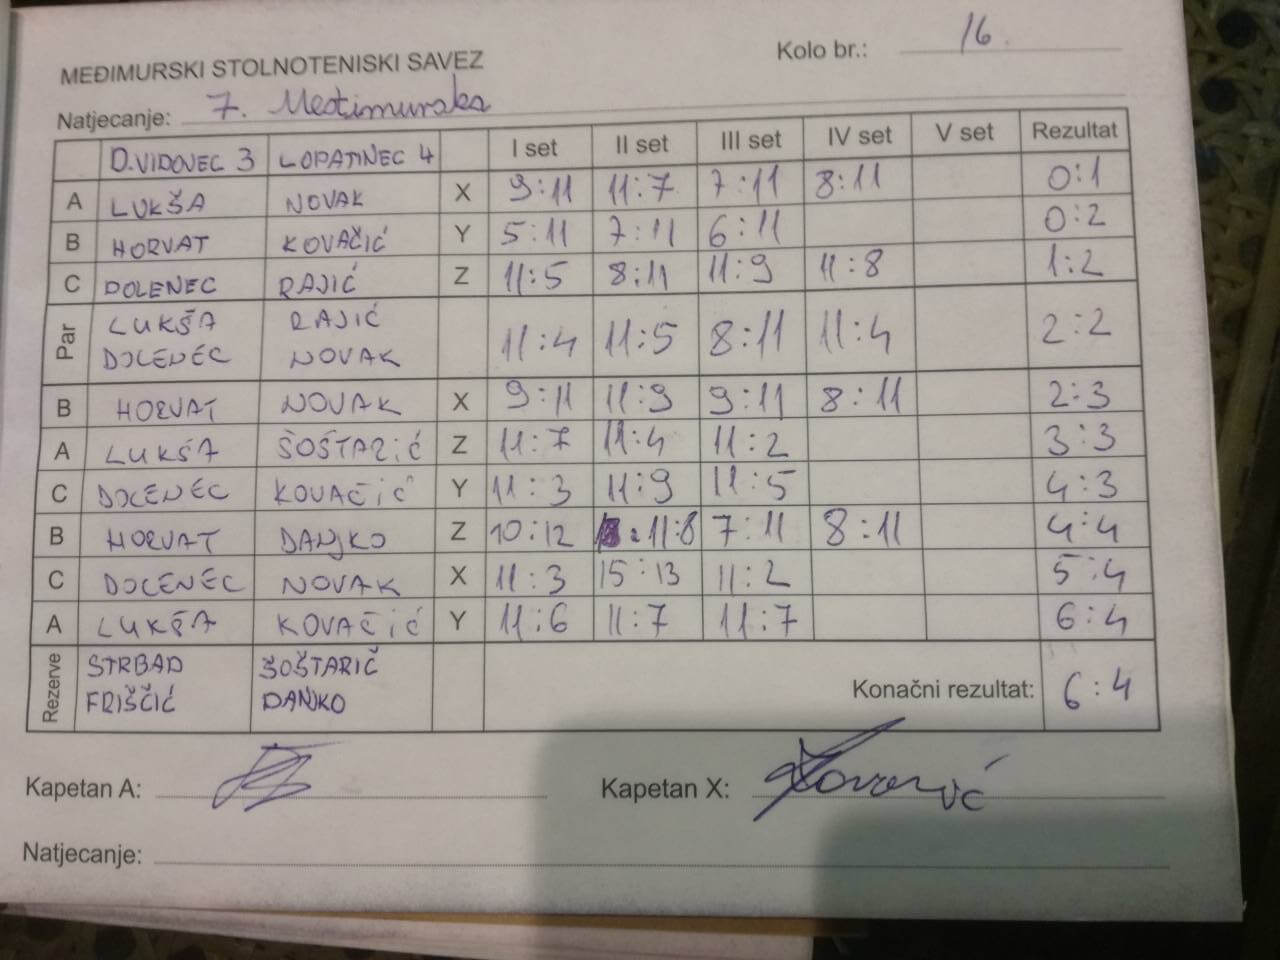 MEĐIMURSKI STOLNOTENISKI SAVEZ
Kolo br.: 16.
Natjecanje: 7. Međimurska
D.VIDOVEC 3 LOPATINEC 4 I set II set III set IV set V set Rezultat
A LUKŠA NOVAK X 9:11 11:7 7:11 8:11 0:1
B HORVAT KOVAČIĆ Y 5:11 7:11 6:11 0:2
C DOLENEC RAJIĆ Z 11:5 8:11 11:9 11:8 1:2
Par LUKŠA RAJIĆ
DOLENEC NOVAK 11:4 11:5 8:11 11:4 2:2
B HORVAT NOVAK X 9:11 11:9 9:11 8:11 2:3
A LUKŠA ŠOŠTARIĆ Z 11:7 11:4 11:2 3:3
C DOLENEC KOVAČIĆ Y 11:3 11:9 11:5 4:3
B HORVAT DANJKO Z 10:12 11:8 7:11 8:11 4:4
C DOLENEC NOVAK X 11:3 15:13 11:2 5:4
A LUKŠA KOVAČIĆ Y 11:6 11:7 11:7 6:4
Rezerve STRBAD ŠOŠTARIČ
FRIŠČIĆ DANJKO Konačni rezultat: 6:4
Kapetan A: Kapetan X:
Natjecanje: